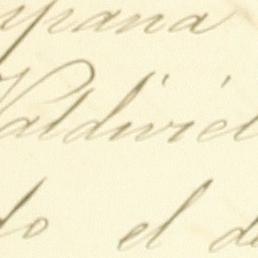 ypana
Valdiviel
do el de